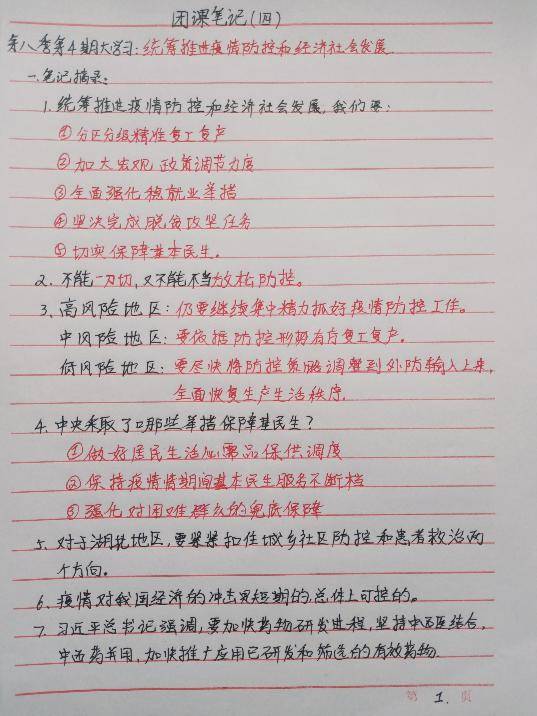 团课笔记(四)
第八季第4期大学习:统筹推进疫情防控和经济社会发展.
一.笔记摘录:
1.统筹推进疫情防控和经济社会发展,我们要:
①分区分级精准复工复产
②加大宏观政策调节力度
③全面强化稳就业举措
④坚决完成脱贫攻坚任务
⑤切实保障基本民生。
2.不能一刀切,又不能不当放松防控。
3.高风险地区:仍要继续集中精力抓好疫情防控工作。
中风险地区:要依据防控形势有序复工复产。
低风险地区:要尽快将防控策略调整到外防输入上来,
全面恢复生产生活秩序.
4.中央采取了哪些举措保障基民生?
①做好居民生活必需品保供调度
②保持疫情情期间基本民生服务不断档
③强化对困难群众的兜底保障
5.对于湖北地区,要紧紧扣住城乡社区防控和患者救治两
个方向。
6.疫情对我国经济的冲击是短期的,总体上可控的。
7.习近平总书记强调,要加快药物研发进程,坚持中西医结合,
中西药并用,加快推广应用已研发和筛选的有效药物.
第 1. 页